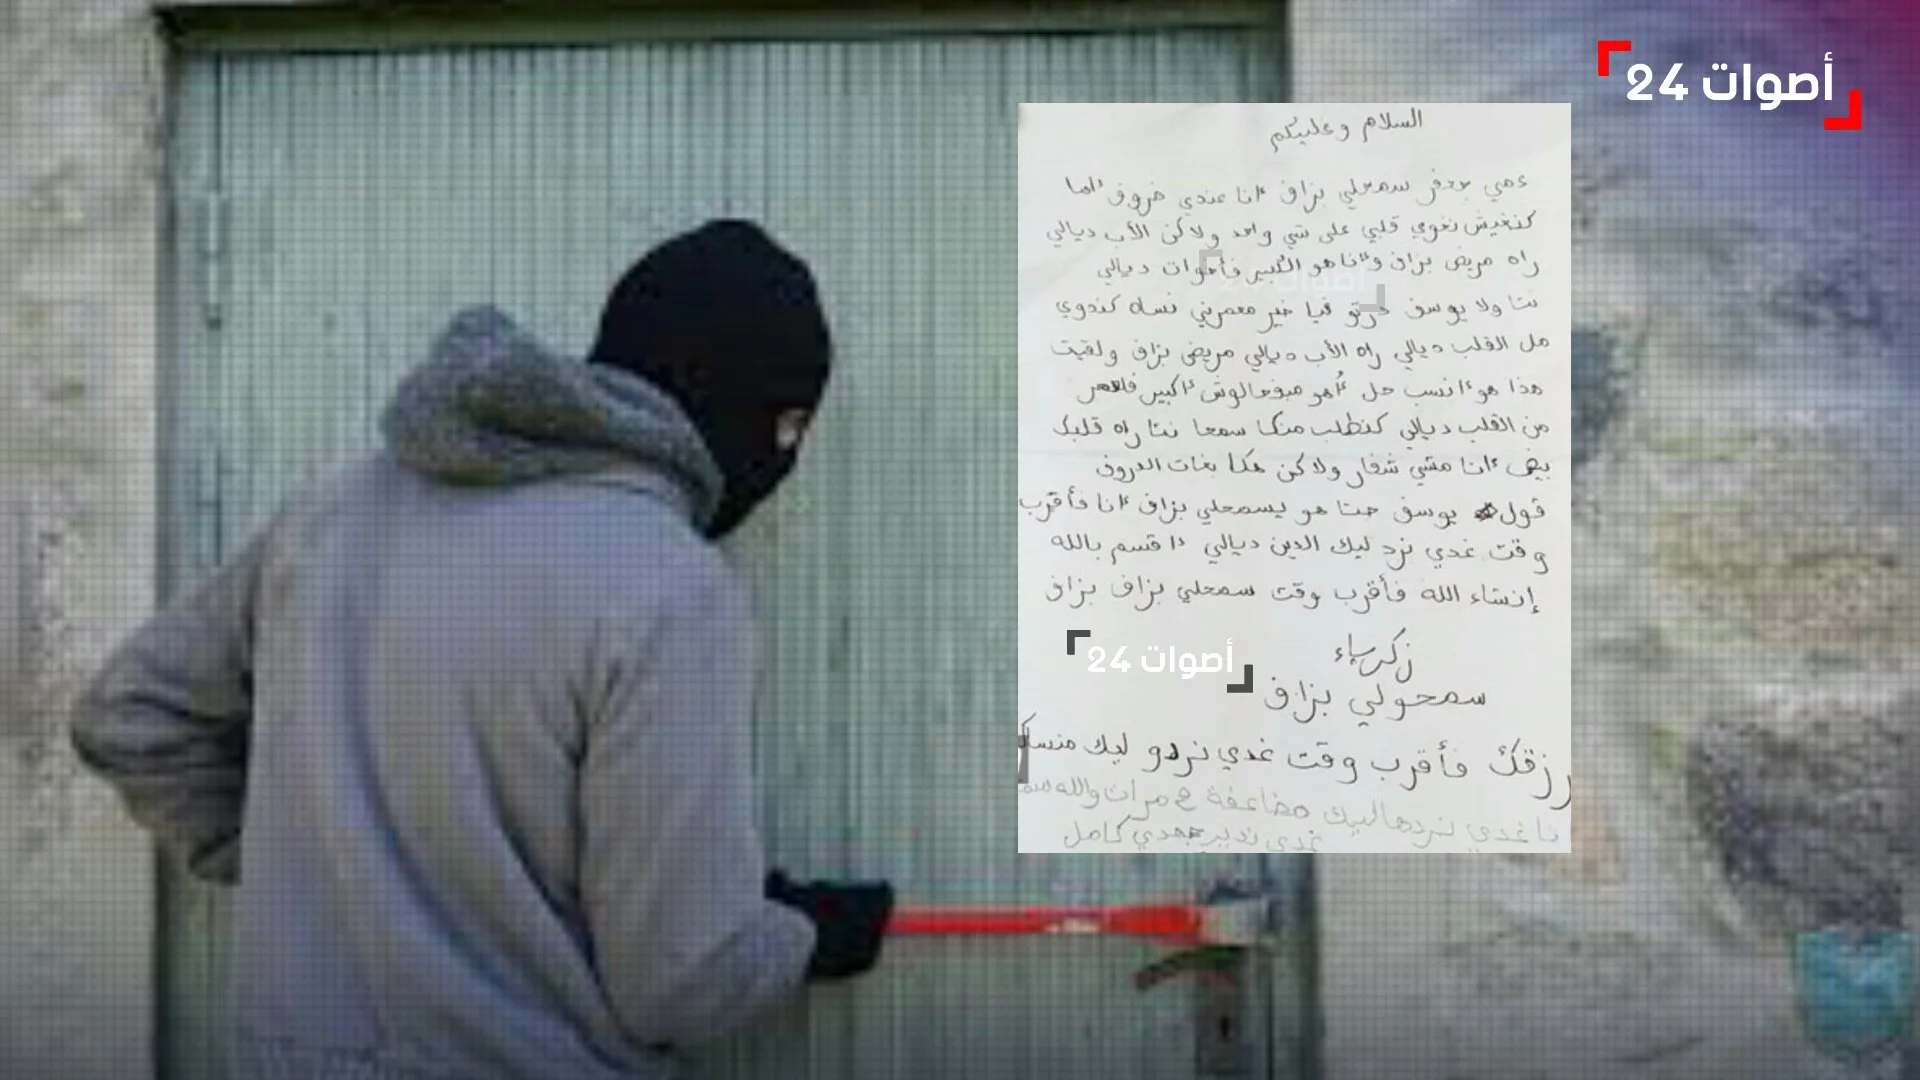 أصوات 24
السلام وعليكم
عمي جعفر سمحلي بزاف أنا عندي ضروف أما
كنغيش نغوي قلبي على شي واحد ولاكن الأب ديالي
راه مريض بزاف وأنا هو الكبير فأخوات ديالي
نتا ولا يوسف درتو فيا خير معمرني نساه كندوي
مل القلب ديالي راه الأب ديالي مريض بزاف ولقيت
هذا هو أنسب حل أهو أكبير
من القلب ديالي كنطلب منك سمعا نتا راه قلبك
بيض أنا مشي شفار ولاكن هكا بغات الدروف
قول يوسف حتا هو يسمحلي بزاف أنا فأقرب
وقت غدي نرد ليك الدين ديالي اقسم بالله
إنشاء الله فأقرب وقت سمحلي بزاف بزاف
زكرياء
أصوات 24
سمحولي بزاف
رزقك فأقرب وقت غدي نردو ليك
نا غدي نردها ليك مضاعفة مرات والله
غدي ندير جهدي كامل